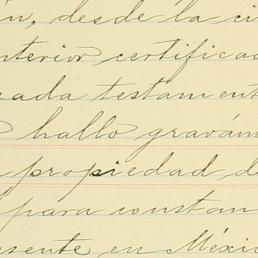 n, desde la ci
nterior certificad
cada testament
hallo graváme
propiedad de
para constan
esente en Méxic